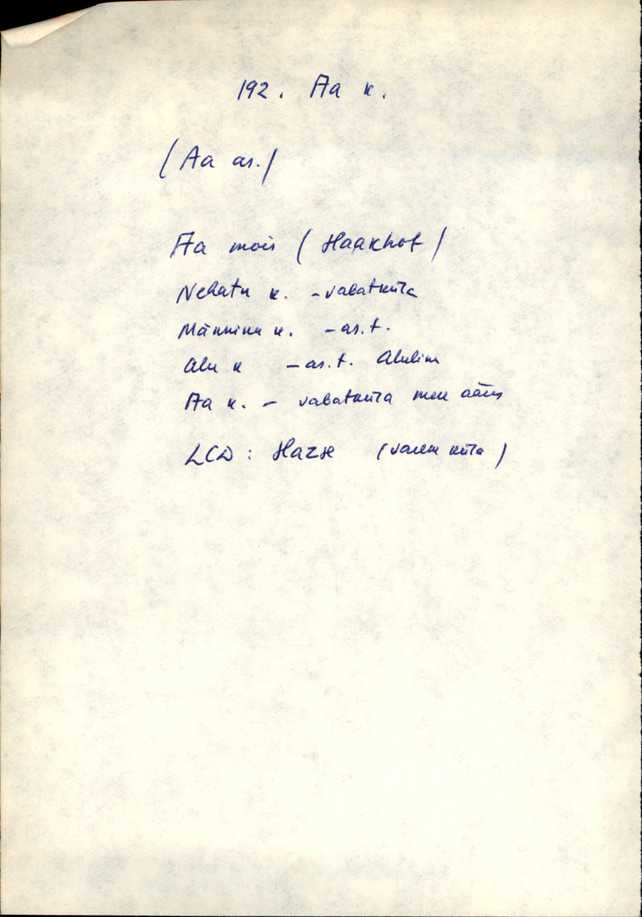 192. Aa k.
(Aa as.)
Aa mõis (Haakhof)
Nehatu k. - vabatküla
Männiku k. - as. t.
Alu k - as. t.
Aa k. - vabatküla mere ääres
LCD: Hazæ (vanem küla)